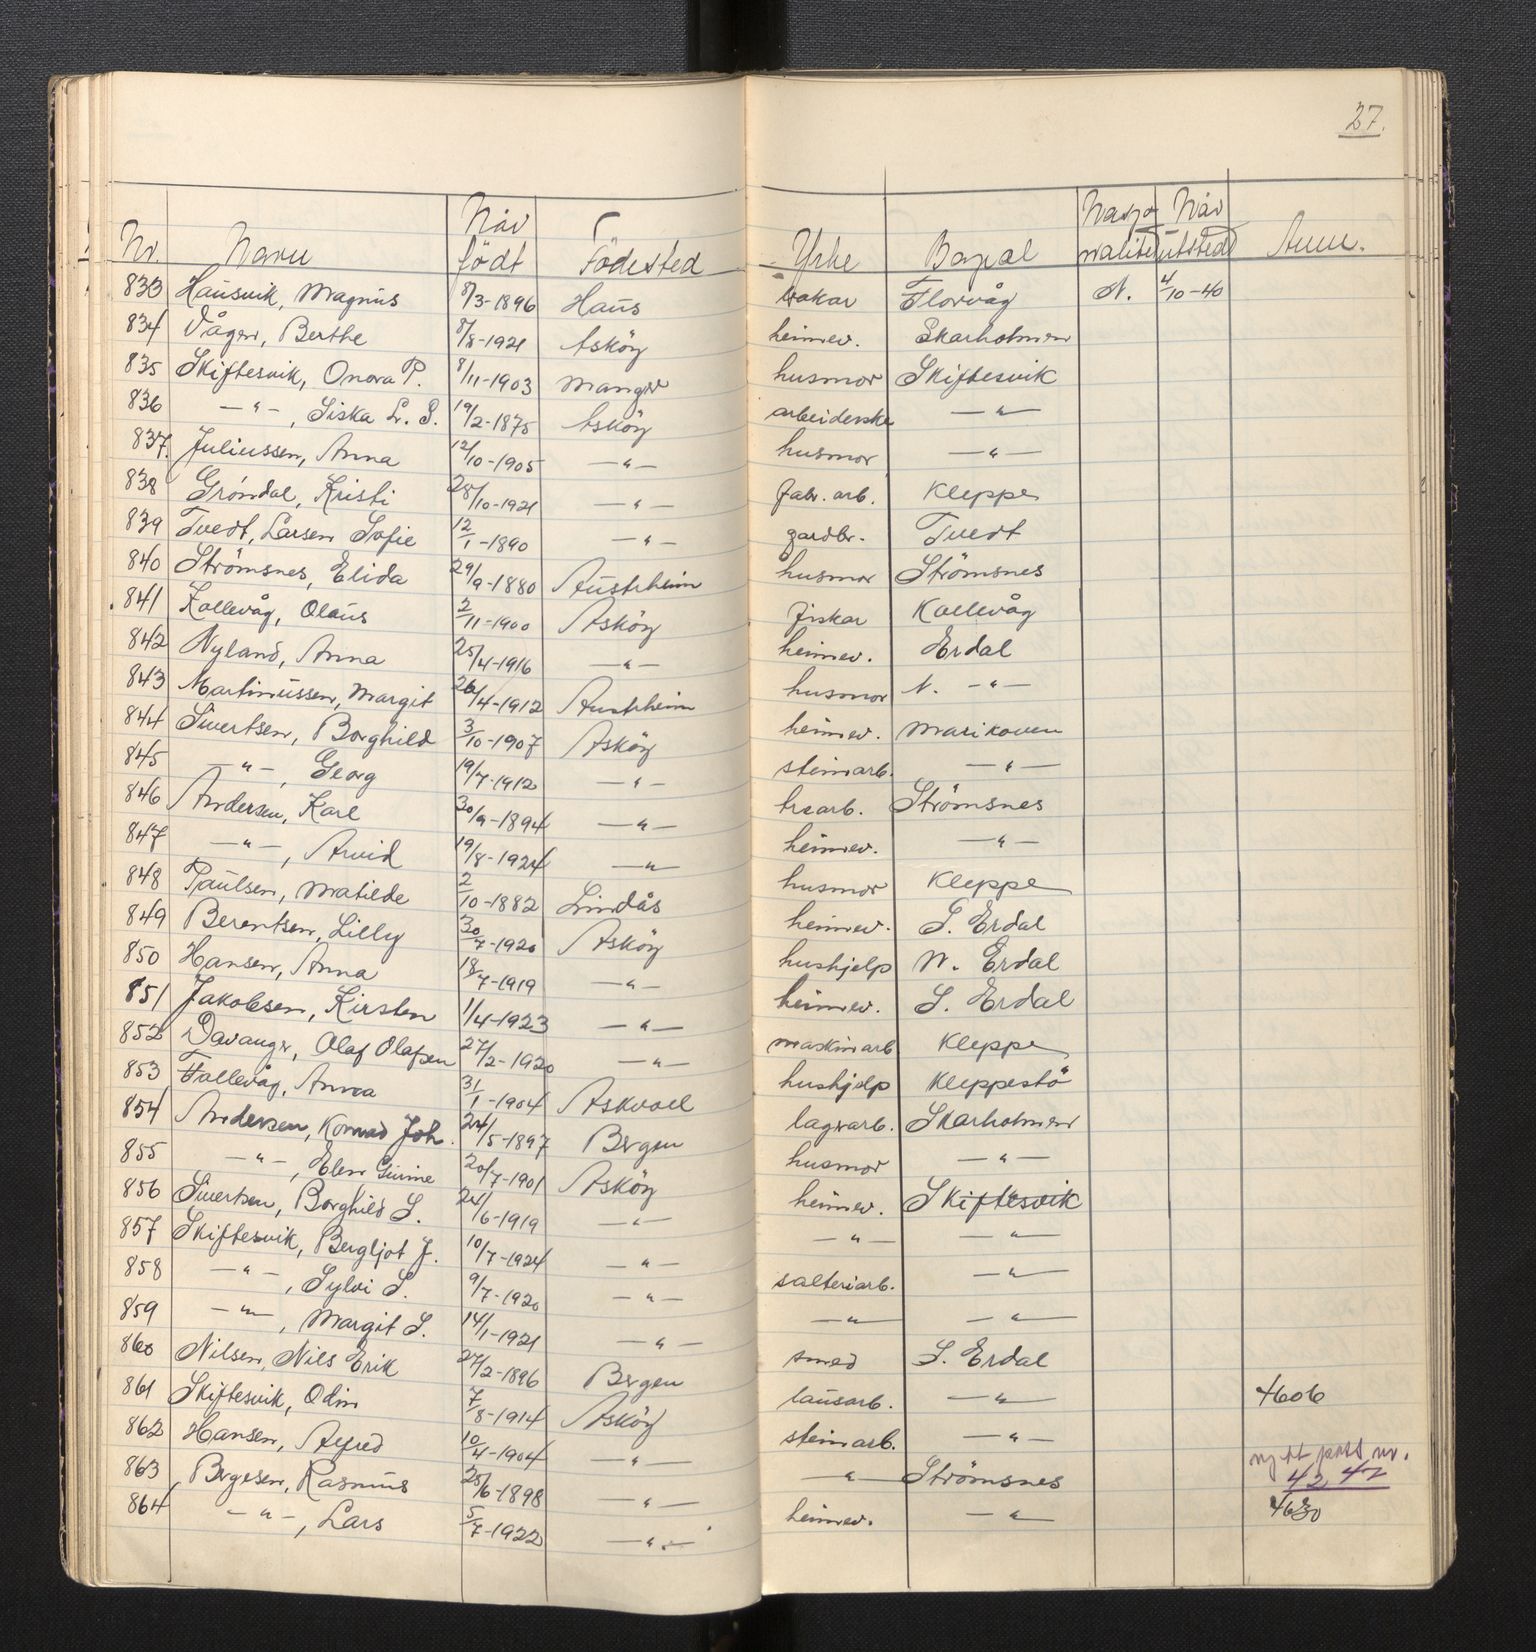 27.
Nr. Navn Når födt Födested Yrke Bopel Nasjonalitet Når utsted Anm.
833 Hausvik, Magnus 8/3-1896 Haus bakar Florvåg N. 4/10-40
834 Vågen, Berthe 8/8-1921 Asköy heimev. Skarholmen
835 Skiftesvik, Onora P. 8/11-1903 Manger husmor Skiftesvik
836 -"-, Siska L. S. 19/2-1875 Asköy arbeiderske -"-
837. Juliussen, Anna 12/10-1905 -"- husmor -"-
838 Gröndal, Kristi 28/10-1921 -"- fabr. arb. Kleppe
839 Tvedt, Larsen Sofie 12/1-1890 -"- gardbr. Tvedt
840 Strömsnes, Elida 29/9-1880 Austrheim husmor Strömsnes
841 Kollevåg, Olaus 2/11-1900 Asköy fiskar Kollevåg
842 Nyland, Anna 25/4-1916 -"- heimev. Erdal
843 Martinussen, Margit 26/4-1912 Austrheim husmor N. -"-
844 Sivertsen, Borghild 3/10-1907 Asköy heimev. Marikoven
845 -"-, Georg 19/7-1912 -"- steinarb. -"-
846 Andersen, Karl 30/9-1894 -"- trearb. Strömsnes
847 -"-, Arvid 19/8-1924 -"- heimev. -"-
848 Paulsen, Matilde 2/10-1882 Lindås husmor Kleppe
849 Berentsen, Lilly 30/7-1920 Asköy heimev. S. Erdal
850 Hansen, Anna 18/7-1919 -"- hushjelp N. Erdal
851 Jakobsen, Kirsten 1/4-1923 -"- heimev. S. Erdal
852 Davanger, Olaf Olafsen 27/2-1920 -"- maskinarb Kleppe
853 Follevåg, Anna 31/1-1904 Askvoll hushjelp Kleppestö
854 Andersen, Konrad Joh. 24/5-1897 Bergen lagerarb. Skarholmen
855 -"-, Elen Gurine 20/7-1901 Asköy husmor -"-
856 Sivertsen, Borghild S. 24/6-1919 -"- heimev. Skiftesvik
857 Skiftesvik, Bergljot J. 10/7-1924 -"- -"- -"-
858 -"-, Sylvi S. 9/7-1920 -"- salteriarb. -"-
859 -"-, Margit S. 14/1-1921 -"- -"- -"-
860 Nilsen, Nils Erik 27/2-1896 Bergen smed S. Erdal
861 Skiftesvik, Odin 7/8-1914 Asköy lausarb. -"- 4606
862 Hansen, Alfred 10/4-1904 " steinarb. -"-
863 Bergesen, Rasmus 25/6-1898 -"- -"- Strömsnes nytt pass nr. 4247
864 -"-, Lars 5/7-1922 -"- heimev. -"- 4630